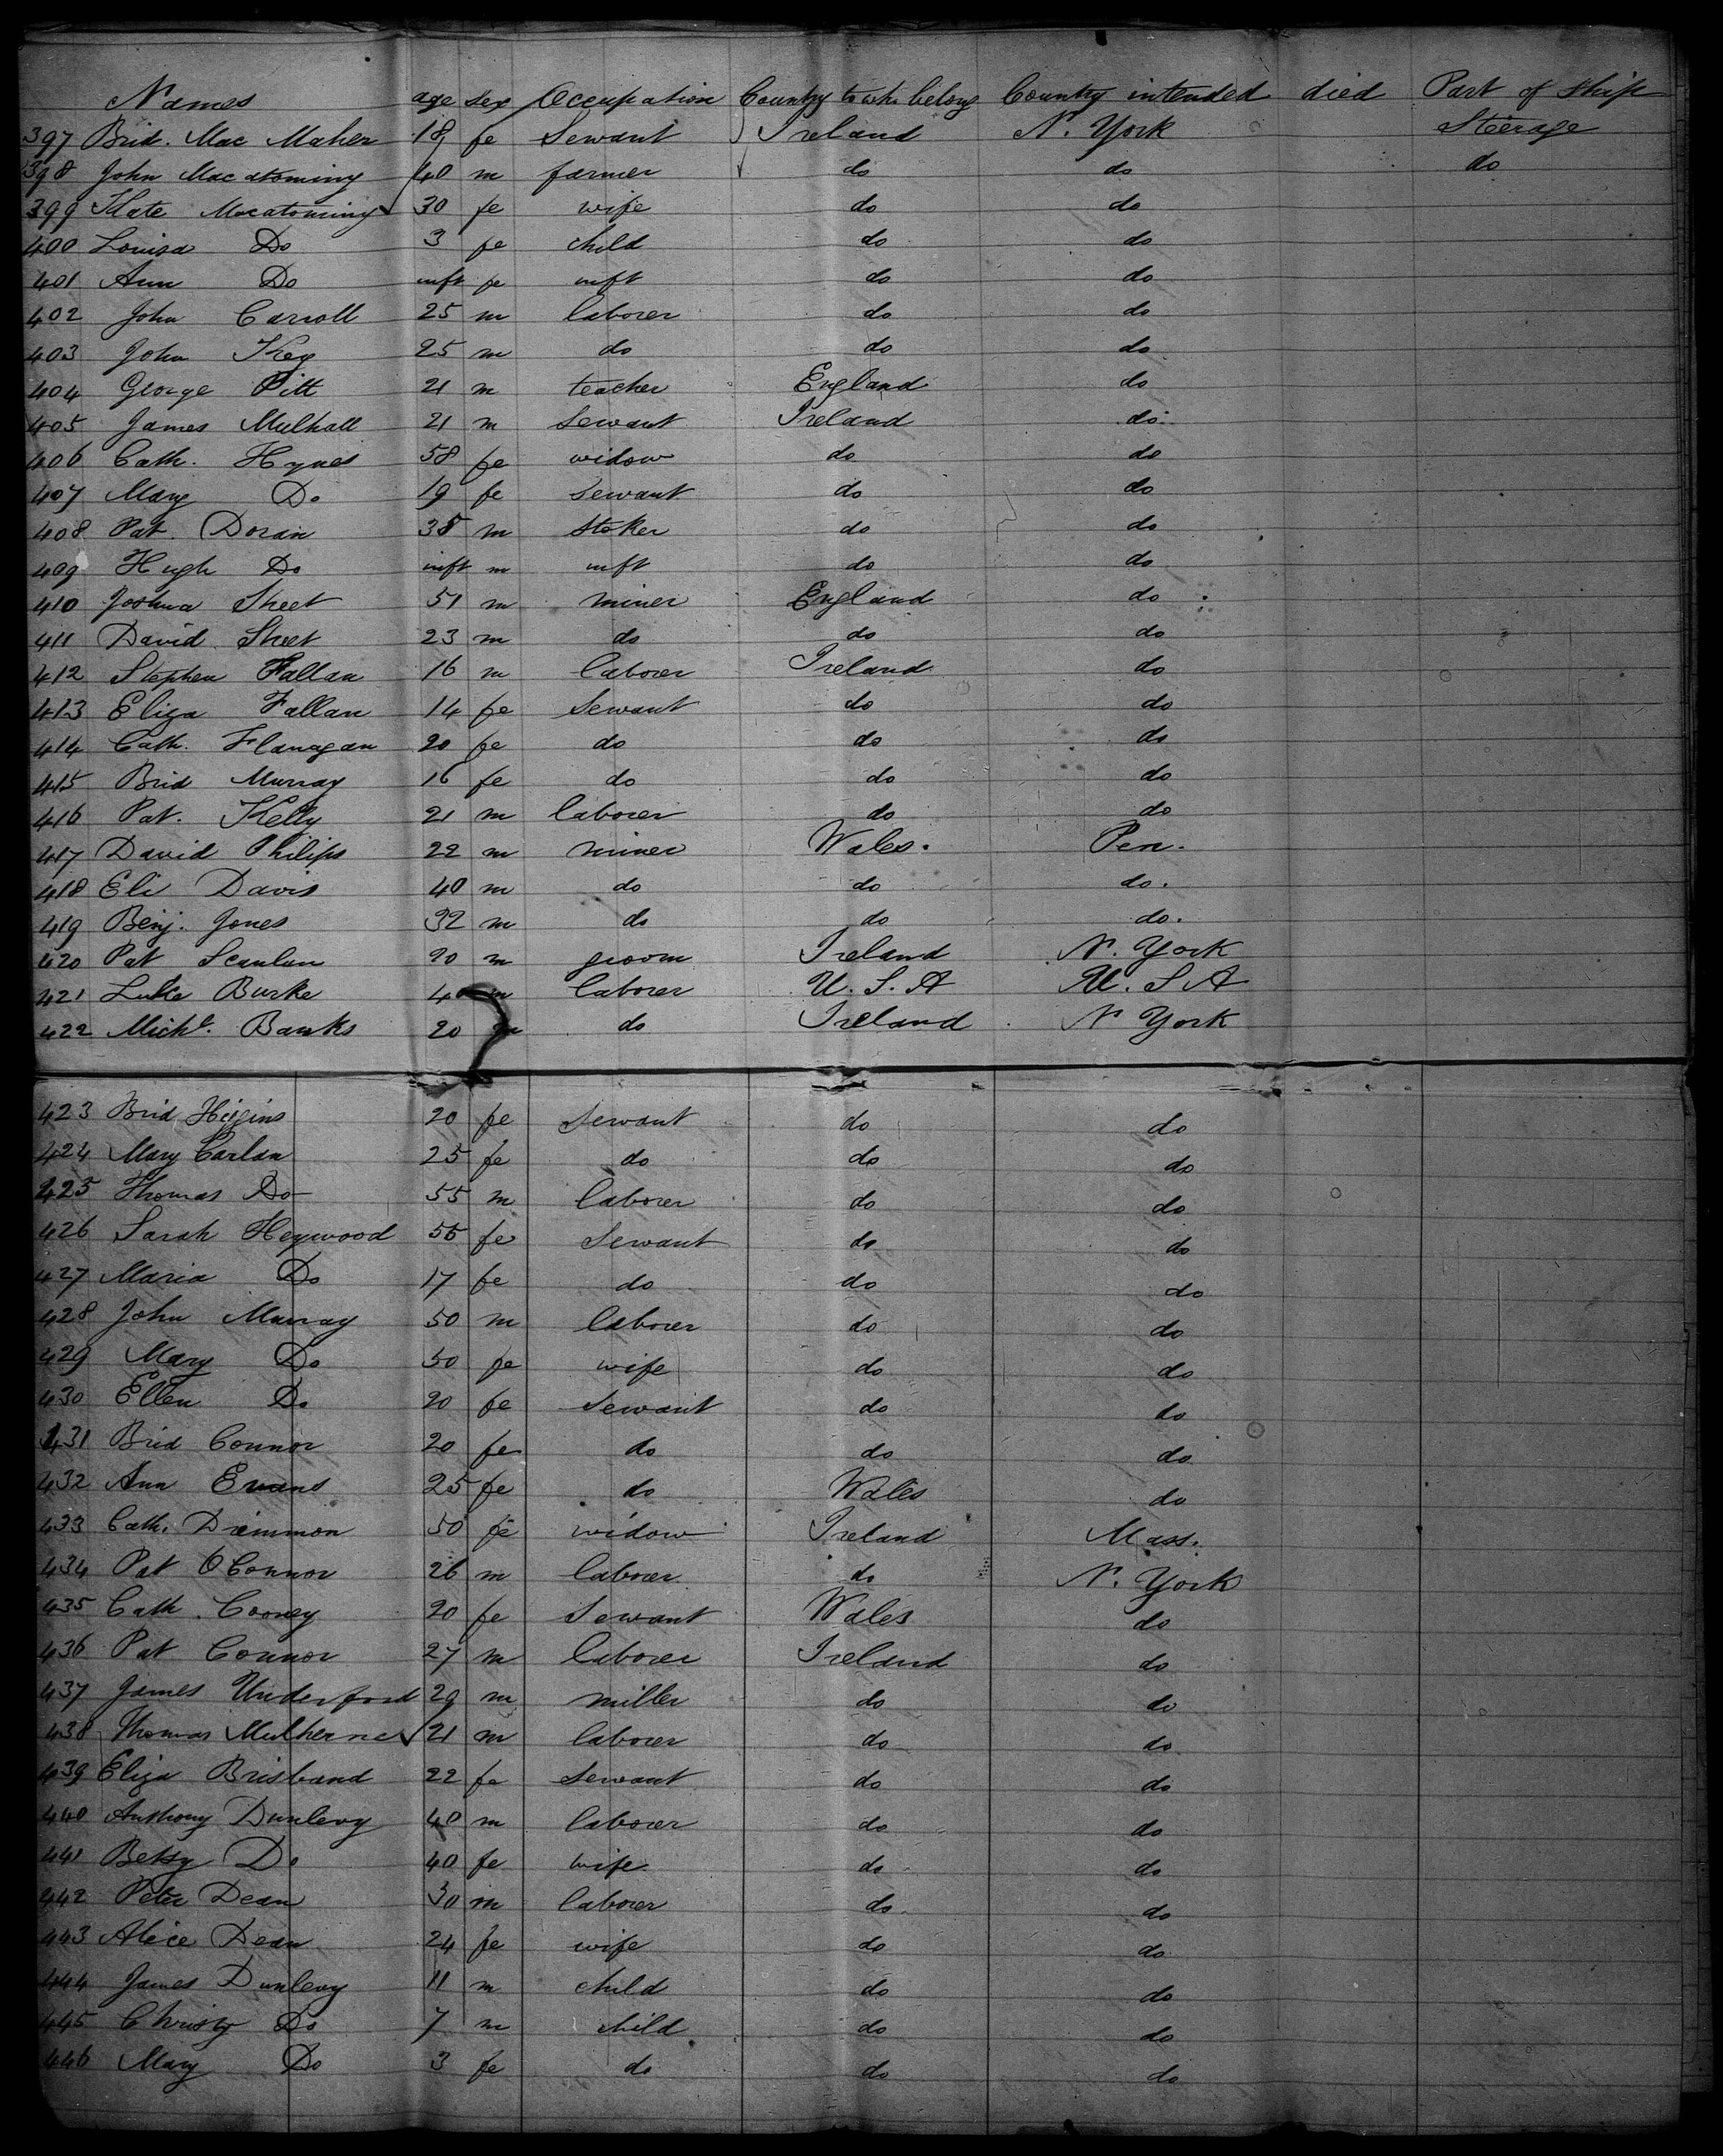 Names age sex Occupation Country to wh. belong Country intended died Part of ship
397 Brid. Mac Maher 18 fe Servant Ireland N. York Steerage
398 John Macatominy 40 m farmer do do do
399 Kate Macatominy 30 fe wife do do
400 Louisa Do 3 fe child do do
401 Ann Do inft fe inft do do
402 John Carroll 25 m laborer do do
403 John Key 25 m do do do
404 George Pitt 21 m teacher England do
405 James Mulhall 21 m Servant Ireland do
406 Cath. Hynes 58 fe widow do do
407 Mary Do 19 fe Servant do do
408 Pat. Doran 35 m stoker do do
409 Hugh Do inft m inft do do
410 Joshua Street 51 m miner England do
411 David Street 23 m do do do
412 Stephen Fallan 16 m laborer Ireland do
413 Eliza Fallan 14 fe Servant do do
414 Cath. Flanagan 20 fe do do do
415 Brid Murray 16 fe do do do
416 Pat. Kelly 21 m laborer do do
417 David Philips 22 m miner Wales. Pen.
418 Eli Davis 40 m do do do.
419 Benj. Jones 32 m do do do.
420 Pat Scanlan 20 m groom Ireland N. York
421 Luke Burke 40 m laborer U. S. A U. S A
422 Michl. Banks 20 m do Ireland N York
423 Brid Heigins 20 fe Servant do do
424 Mary Carlan 25 fe do do do
425 Thomas Do 55 m laborer do do
426 Sarah Heywood 55 fe Servant do do
427 Maria Do 17 fe do do do
428 John Murray 50 m laborer do do
429 Mary Do 50 fe wife do do
430 Ellen Do 20 fe Servant do do
431 Brid Connor 20 fe do do do
432 Ann Evans 25 fe do Wales do
433 Cath. Drimmon 50 fe widow Ireland Mass.
434 Pat OConnor 26 m laborer do N. York
435 Cath. Cooney 20 fe Servant Wales do
436 Pat Connor 27 m laborer Ireland do
437 James Underford 29 m miller do do
438 Thomas Mulherne 21 m laborer do do
439 Eliza Brisband 22 fe Servant do do
440 Anthony Dunlevy 40 m laborer do do
441 Betsy Do 40 fe wife do do
442 Peter Dean 30 m laborer do do
443 Alice Dean 24 fe wife do do
444 James Dunlevy 11 m child do do
445 Christy Do 7 m child do do
446 Mary Do 3 fe do do do